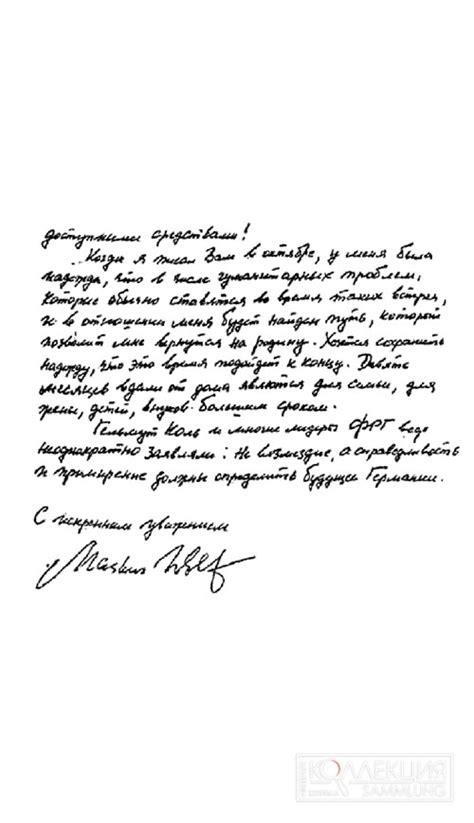 доступными средствами!
Когда я писал Вам в октябре, у меня была
надежда, что в числе гуманитарных проблем,
которые обычно ставятся во время таких встреч,
и в отношении меня будет найден путь, который
позволит мне вернутся на родину. Хочется сохранить
надежду, что это время подойдет к концу. Девять
месяцев вдали от дома являются для семьи, для
жены, детей, внуков большим сроком.
Гельмут Коль и многие лидеры ФРГ ведь
неоднократно заявляли: Не возмездие, а справедливость
и примирение должны определить будущее Германии.
С искренним уважением
Markus Wolf
КОЛЛЕКЦИЯ
SAMMLUNG